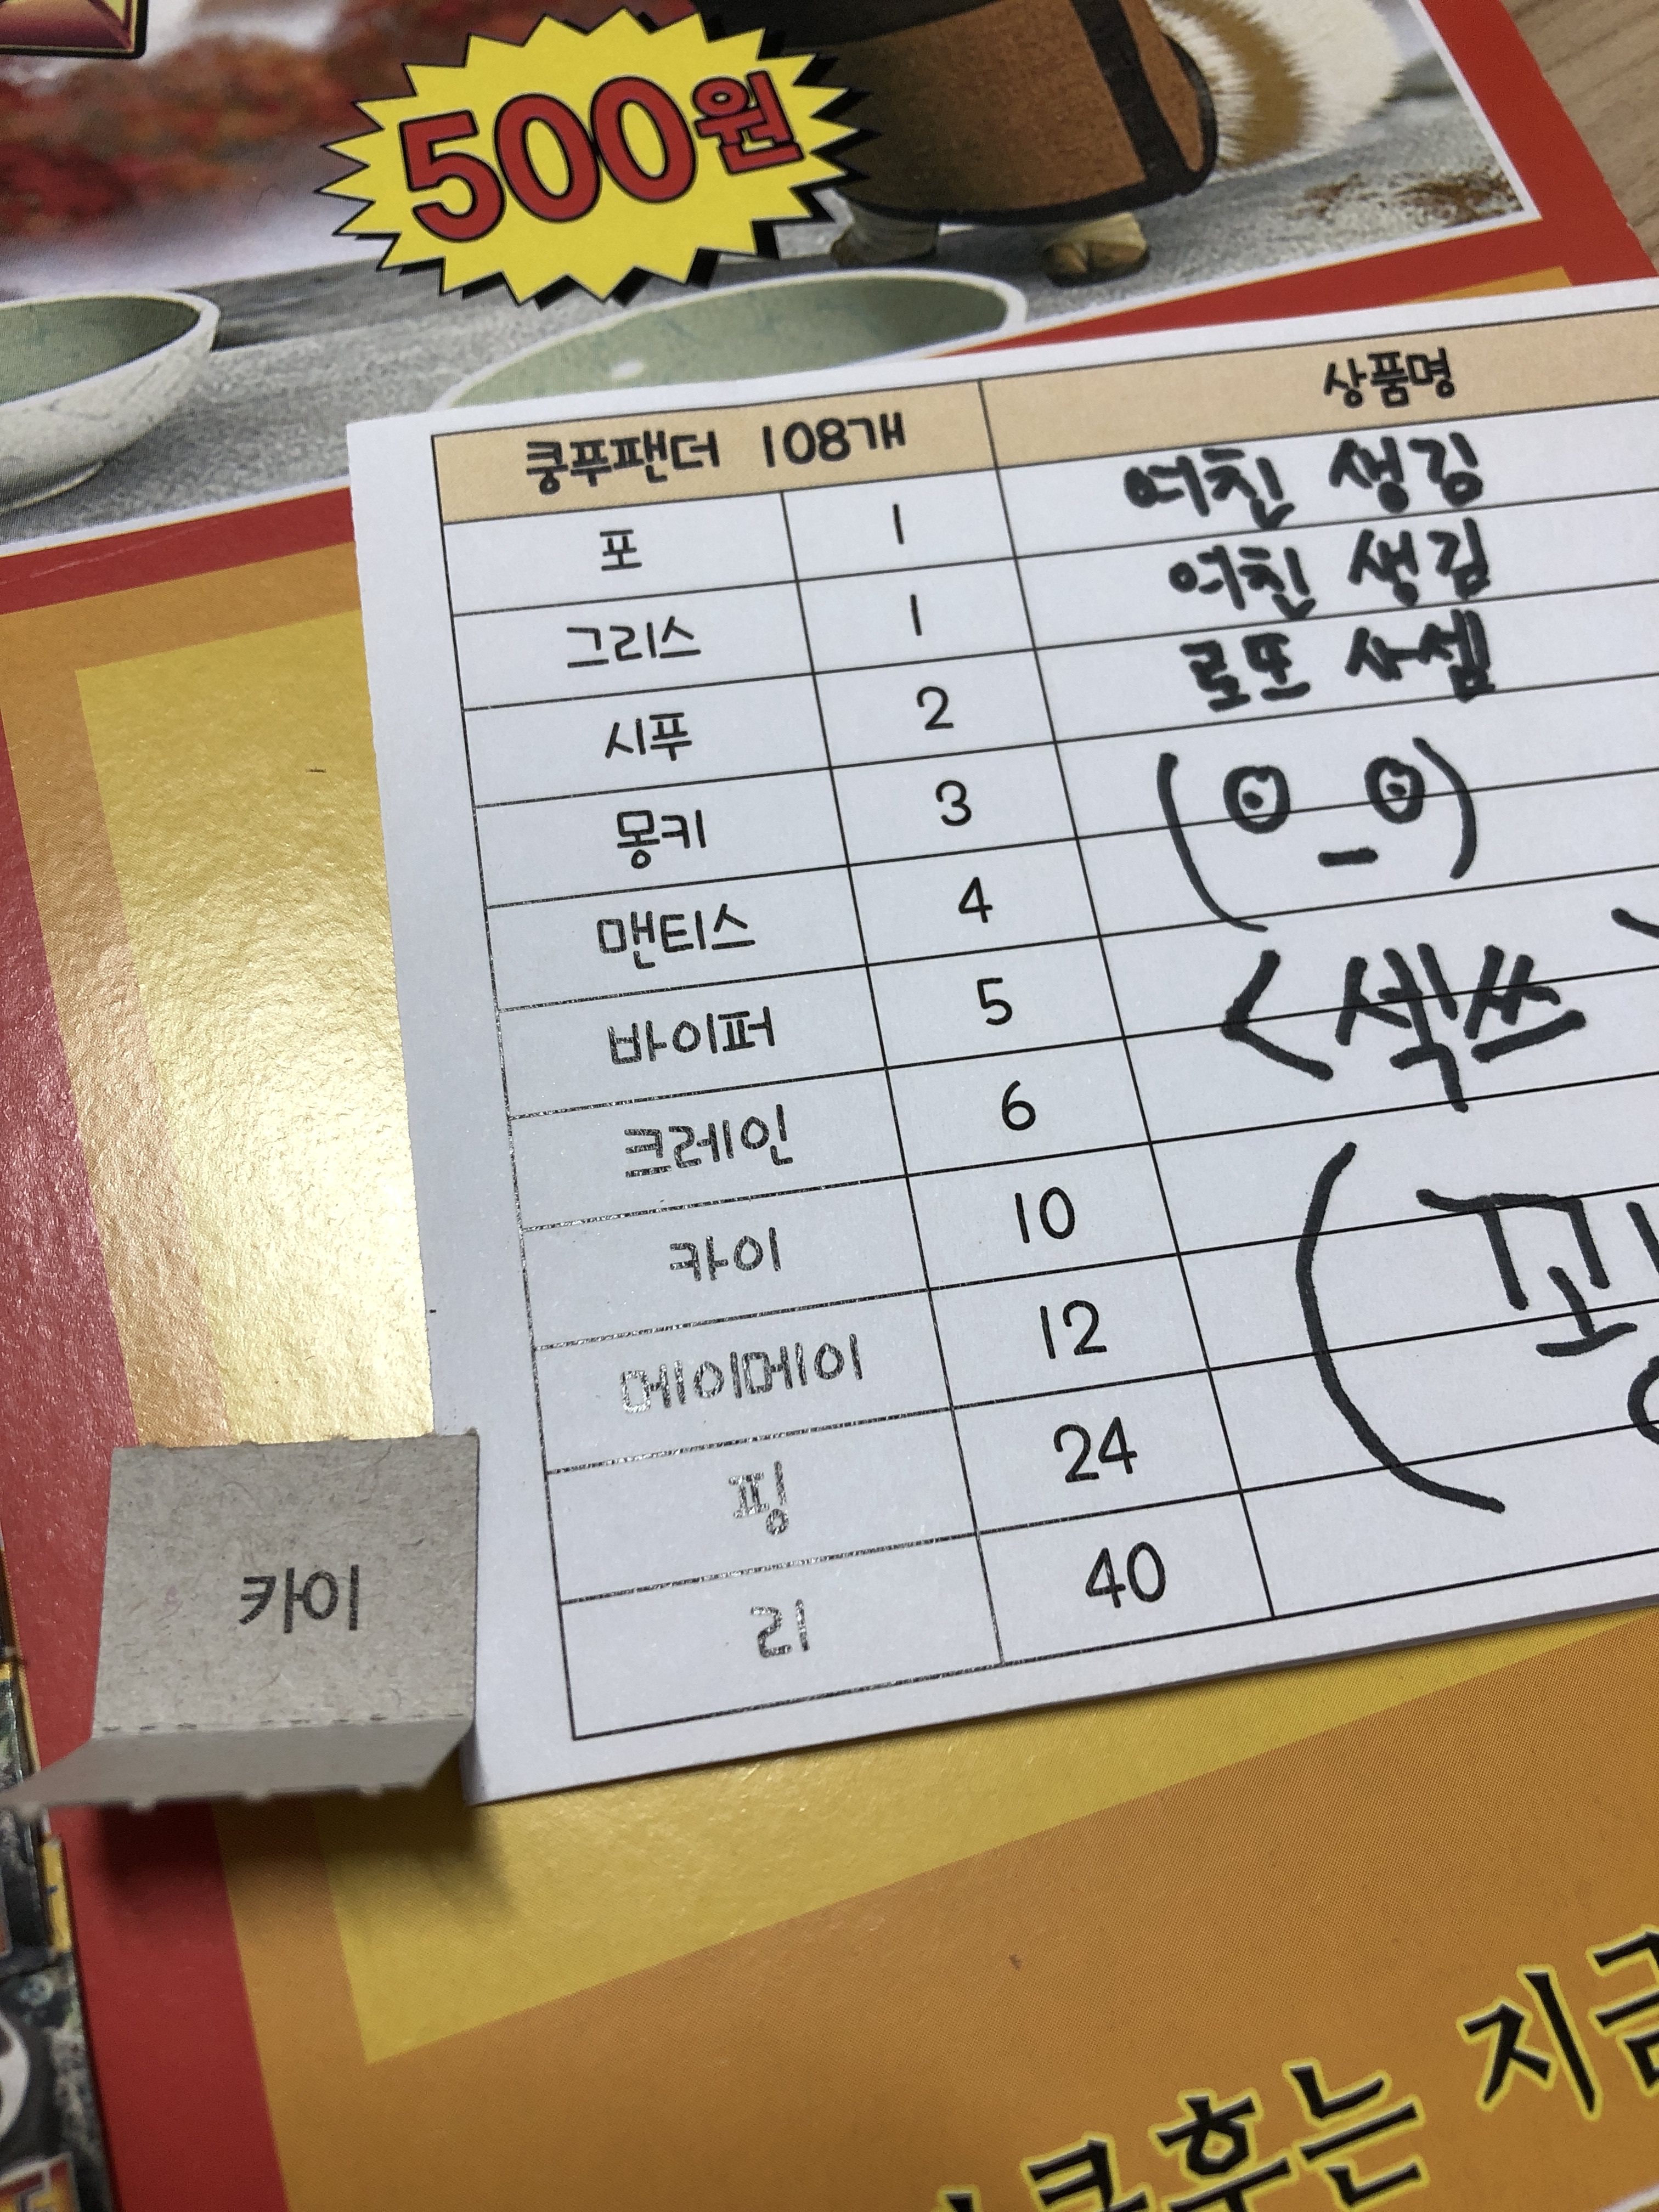 500원
쿵푸팬더 108개 상품명
포 1 여친 생김
그리스 1 여친 생김
시푸 2 로또 사셈
몽키 3
맨티스 4
바이퍼 5 <섹쓰
크레인 6
카이 10
메이메이 12
핑 24
리 40
카이
후는 지금